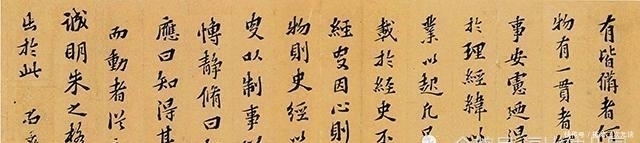 有皆備者何
物有一貫者
事安憲廼得
於理經緯以
業以起凡
載於經史不
經叓因心則
物則史經以
叓以制事以
靜脩曰
應曰知得其
而動者從
誠明朱之格
出於此 石